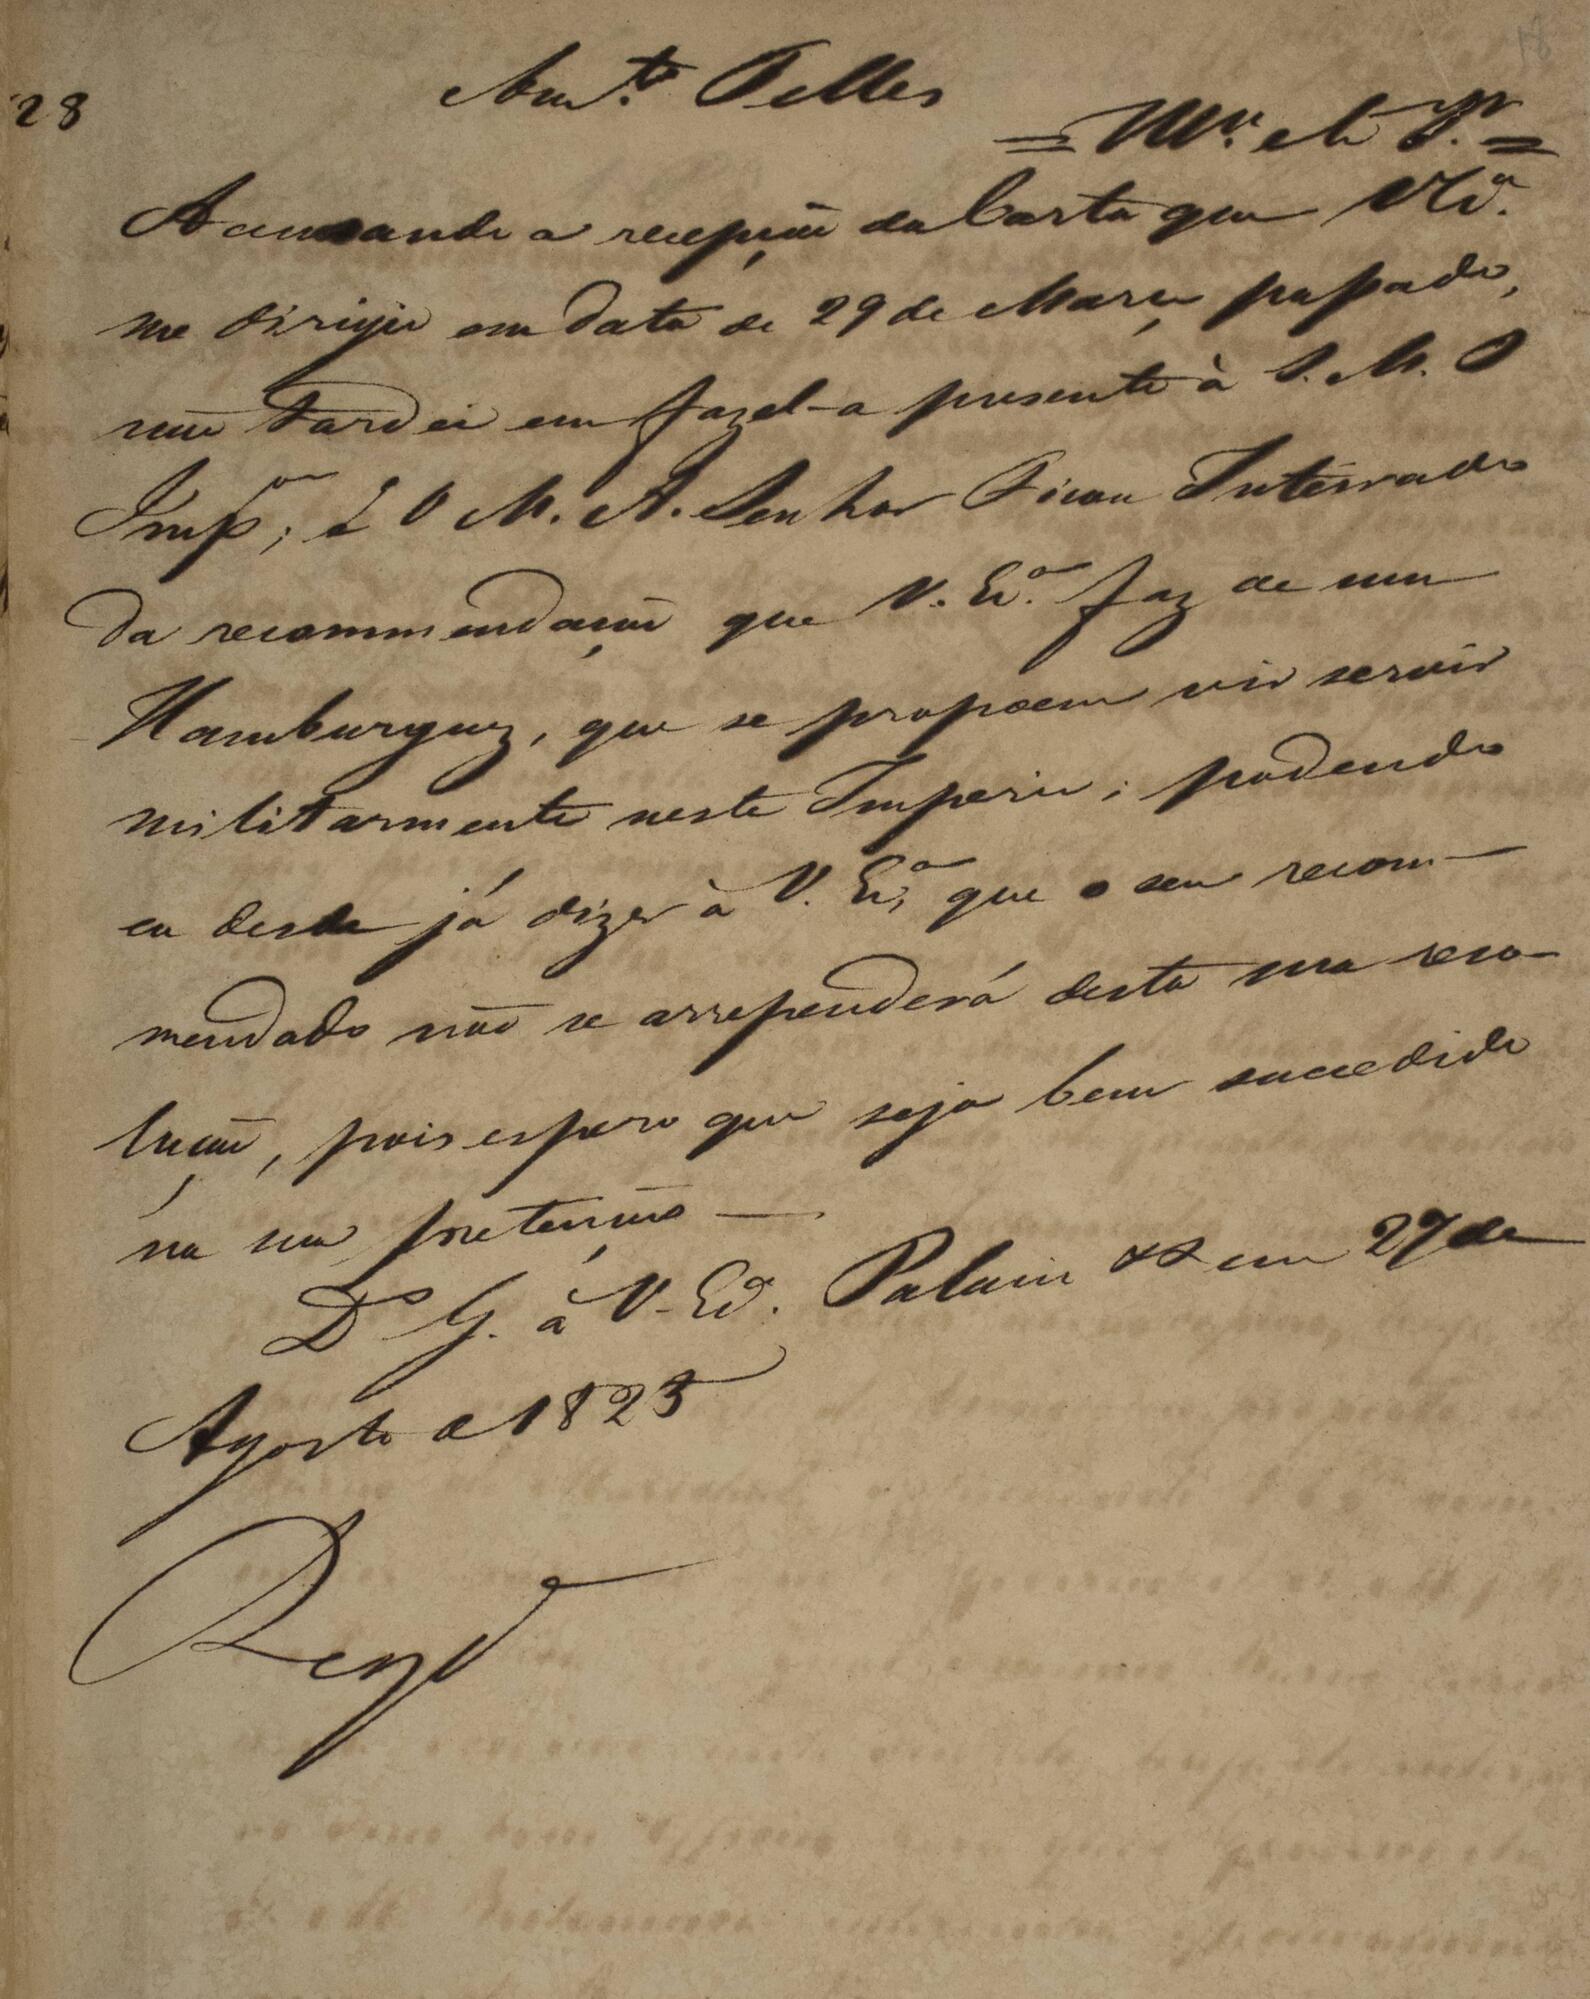 28
Ant.º Telles
= Ill.mo e Sr. =
Accusando a recepção da Carta que V. Ex.ª
me dirigio em data de 29 de Março passado,
não tardei em fazel-a presente à S. M. O
Imp.or; e O M. A. Senhor Ficou Inteirado
da recommendação que V. Ex.ª faz de um
Hamburguez, que se propoem vir servir
militarmente neste Imperio; podendo
eu desde já dizer à V. Ex.ª que o seu recom-
mendado não se arrependerá desta sua reso-
lução, pois espero que seja bem succedido
na sua pretenção —
D.s G. à V. Ex.ª. Palacio em 27 de
Agosto de 1825